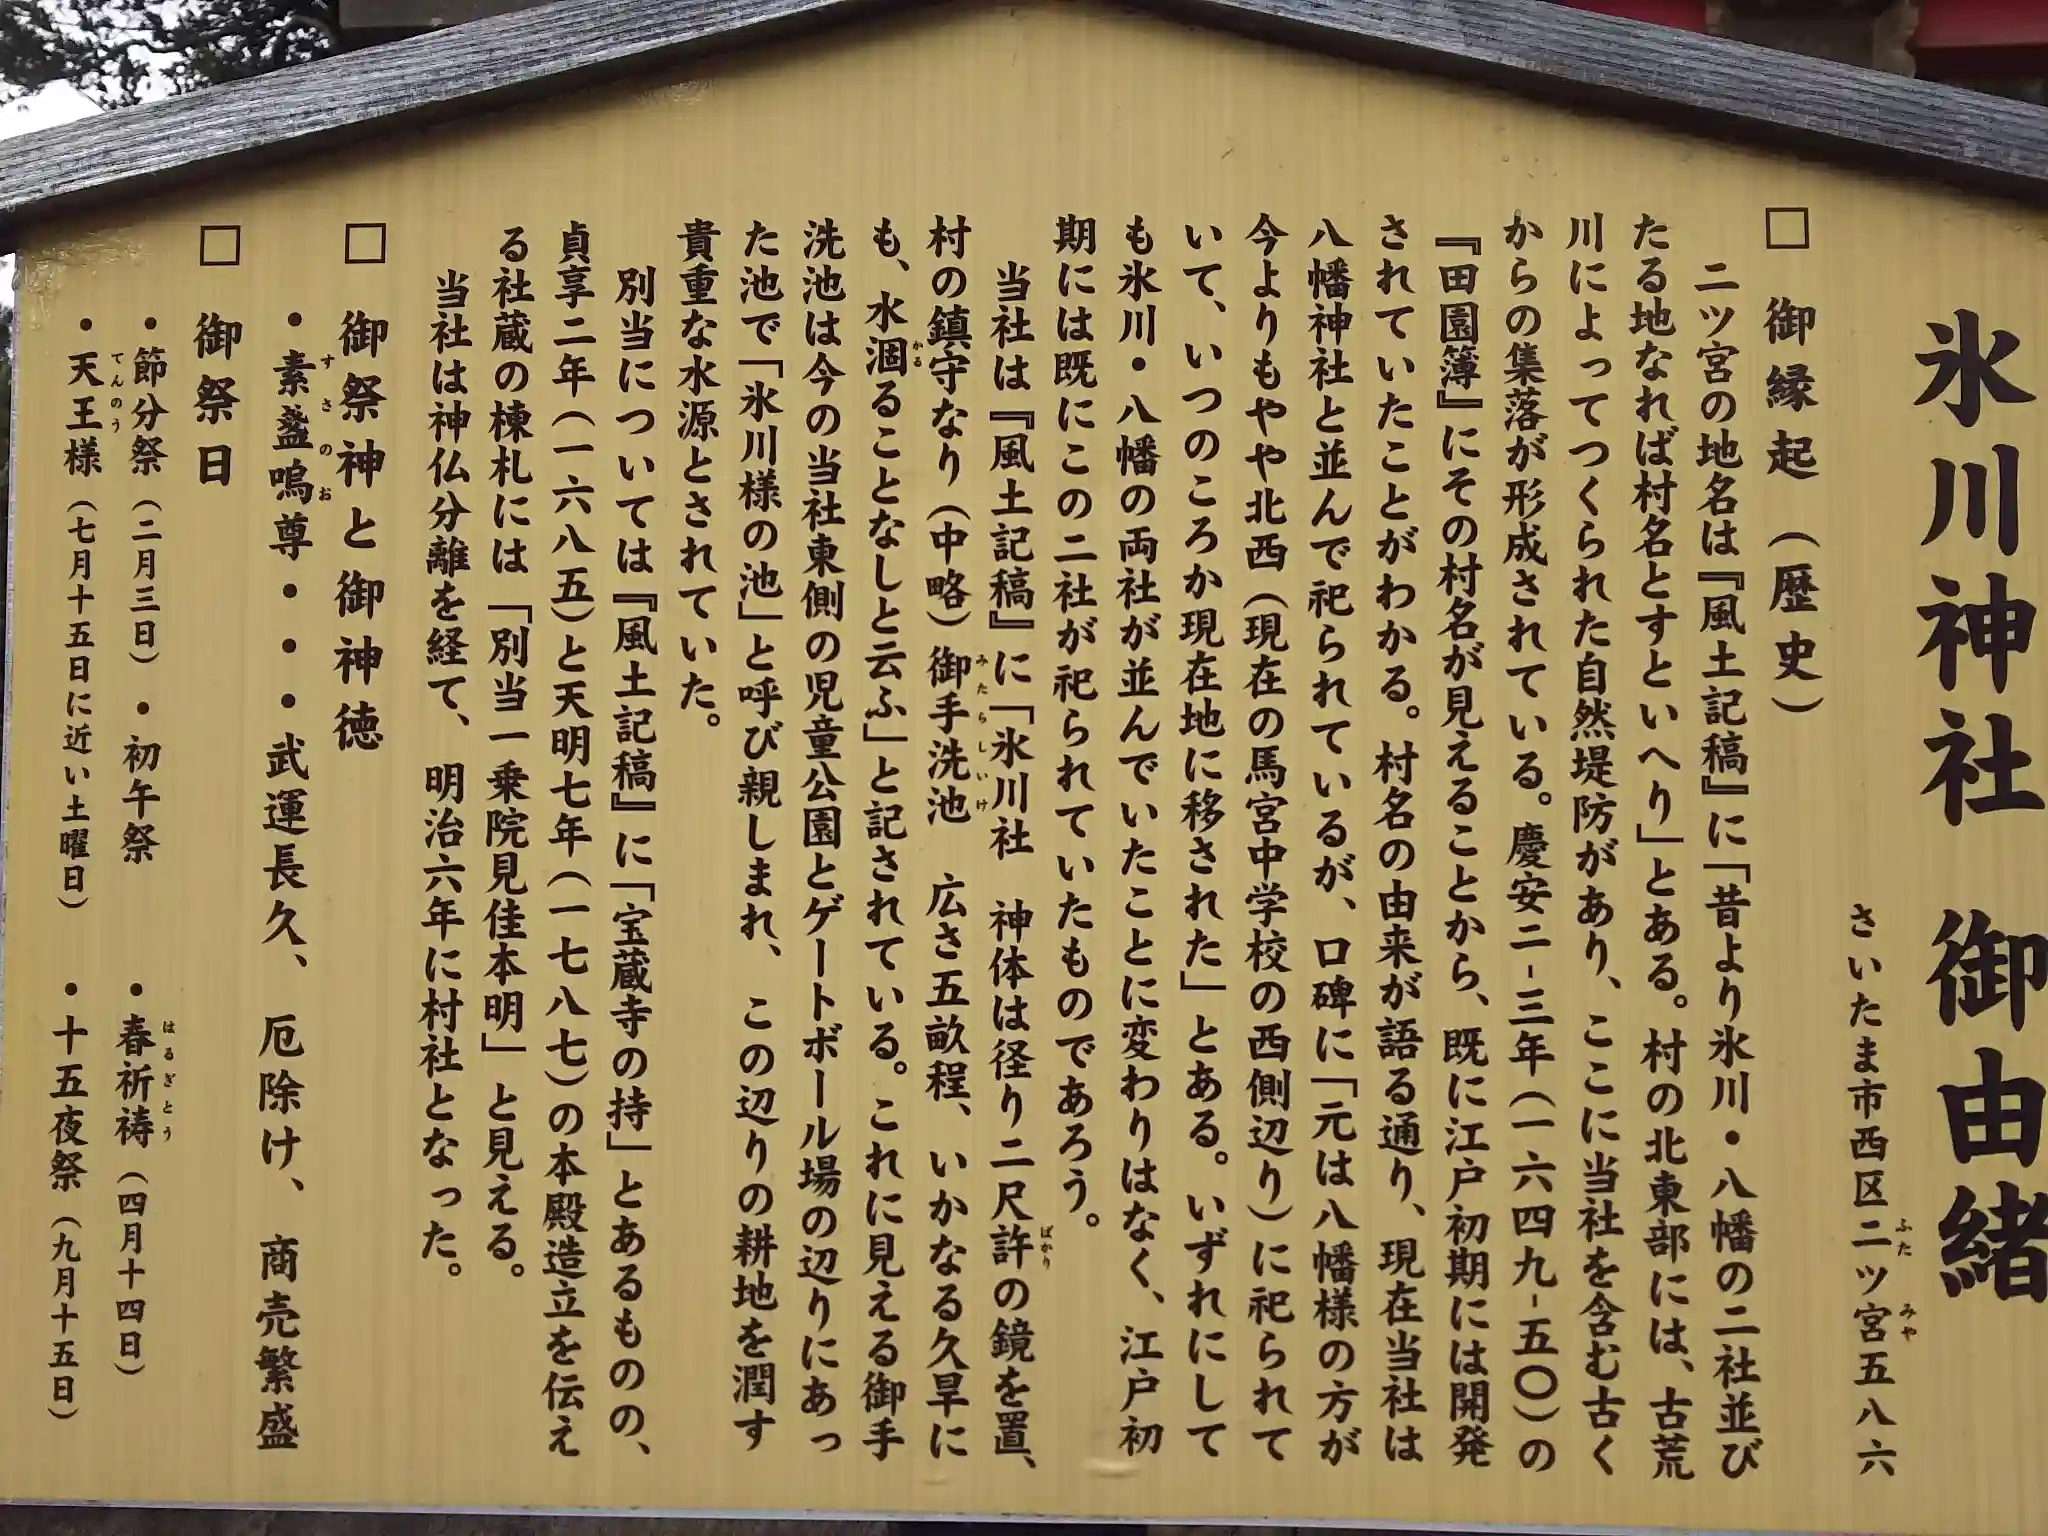 氷川神社 御由緒
さいたま市西区二ツ宮五八六
□ 御縁起(歴史)
二ツ宮の地名は『風土記稿』に「昔より氷川・八幡の二社並び
たる地なれば村名とすといへり」とある。村の北東部には、古荒
川によってつくられた自然堤防があり、ここに当社を含む古く
からの集落が形成されている。慶安二-三年(一六四九-五〇)の
『田園簿』にその村名が見えることから、既に江戸初期には開発
されていたことがわかる。村名の由来が語る通り、現在当社は
八幡神社と並んで祀られているが、口碑に「元は八幡様の方が
今よりもやや北西(現在の馬宮中学校の西側辺り)に祀られて
いて、いつのころか現在地に移された」とある。いずれにして
も氷川・八幡の両社が並んでいたことに変わりはなく、江戸初
期には既にこの二社が祀られていたものであろう。
当社は『風土記稿』に「氷川社 神体は径り二尺許の鏡を置、
村の鎮守なり(中略)御手洗池 広さ五畝程、いかなる久旱に
も、水涸ることなしと云ふ」と記されている。これに見える御手
洗池は今の当社東側の児童公園とゲートボール場の辺りにあっ
た池で「氷川様の池」と呼び親しまれ、この辺りの耕地を潤す
貴重な水源とされていた。
別当については『風土記稿』に「宝蔵寺の持」とあるものの、
貞享二年(一六八五)と天明七年(一七八七)の本殿造立を伝え
る社蔵の棟札には「別当一乗院見佳本明」と見える。
当社は神仏分離を経て、明治六年に村社となった。
□ 御祭神と御神徳
・素盞嗚尊・・・武運長久、厄除け、商売繁盛
□ 御祭日
・節分祭(二月三日)・初午祭 ・春祈祷(四月十四日)
・天王様(七月十五日に近い土曜日) ・十五夜祭(九月十五日)